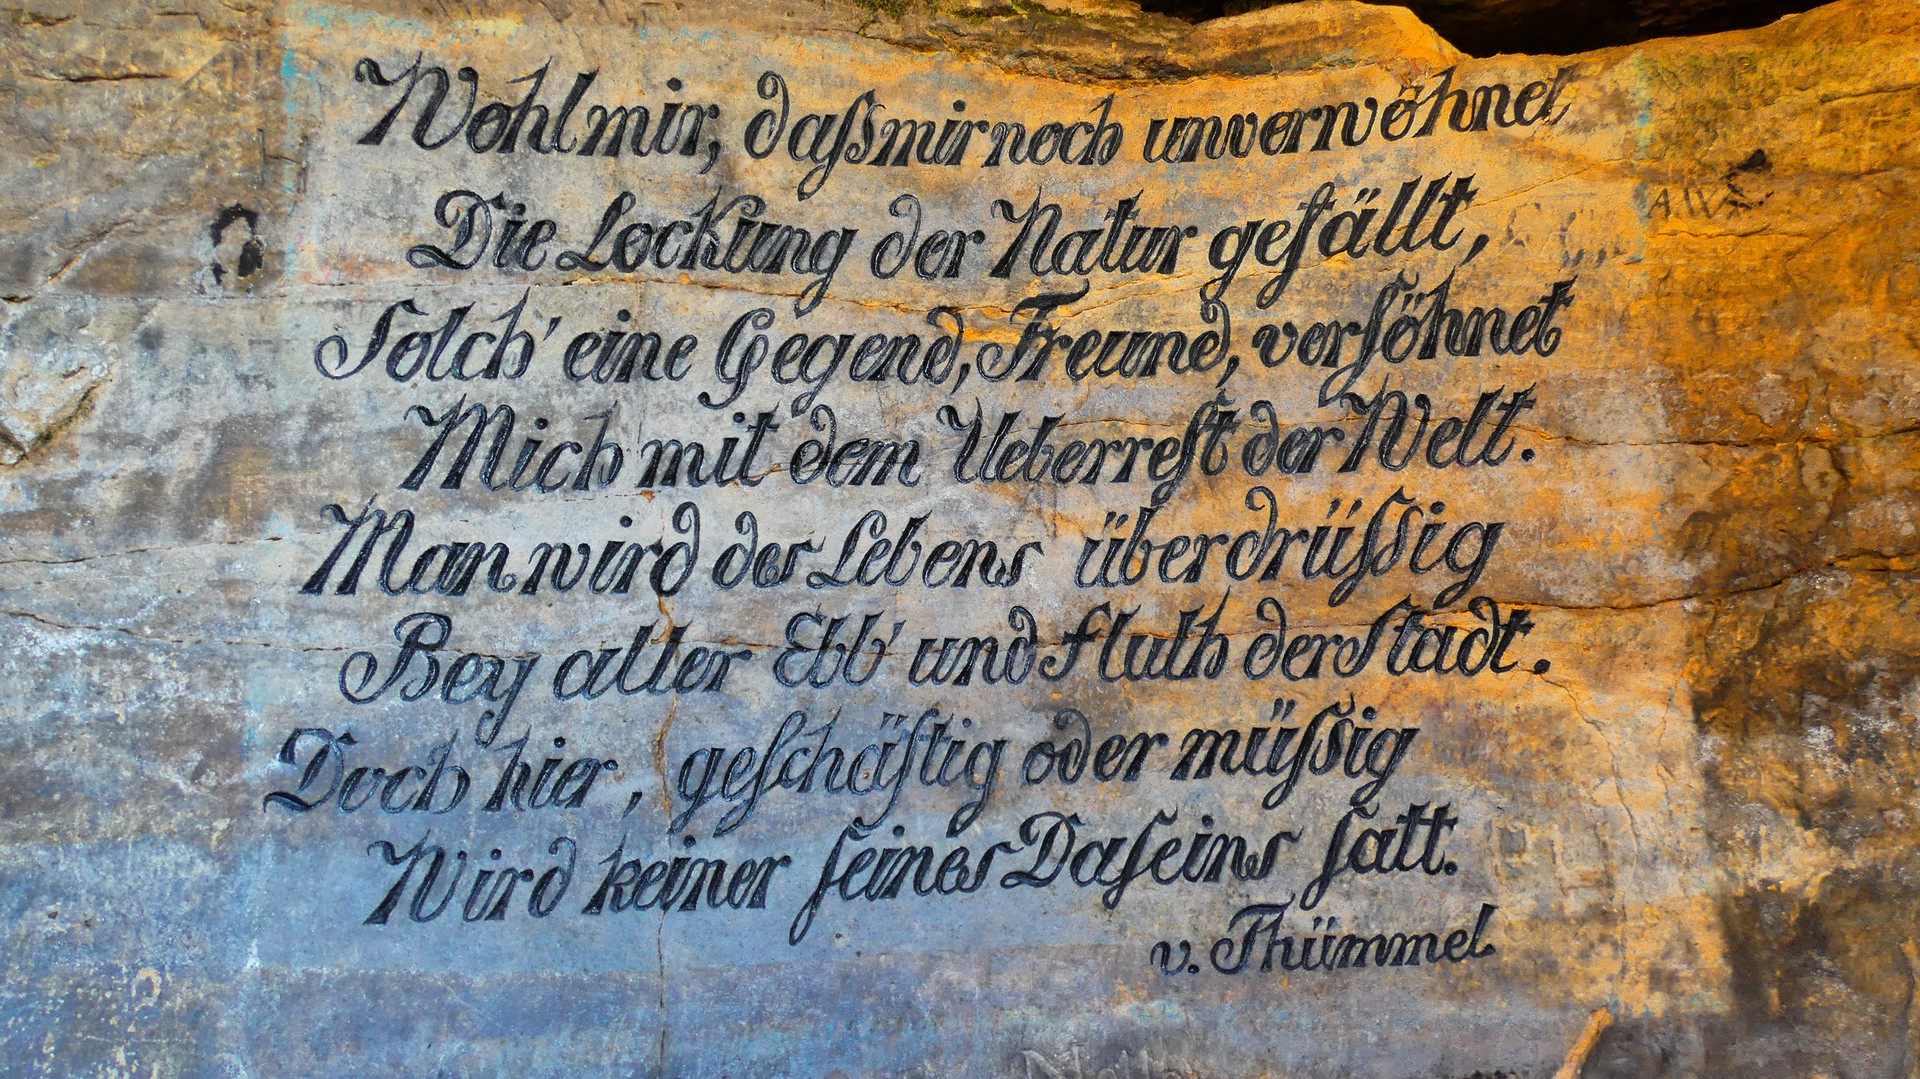 Wohl mir, daſs mir noch unverwöhnet
A.W.
Die Lockung der Natur gefällt,
Solch' eine Gegend, Freund, verſöhnet
Mich mit dem Ueberreſt der Welt.
Man wird des Lebens überdrüſsig
Bey aller Ebb' und Fluth der Stadt.
Doch hier, geſchäftig oder müſsig
Wird keiner ſeines Daſeins ſatt.
v. Thümmel